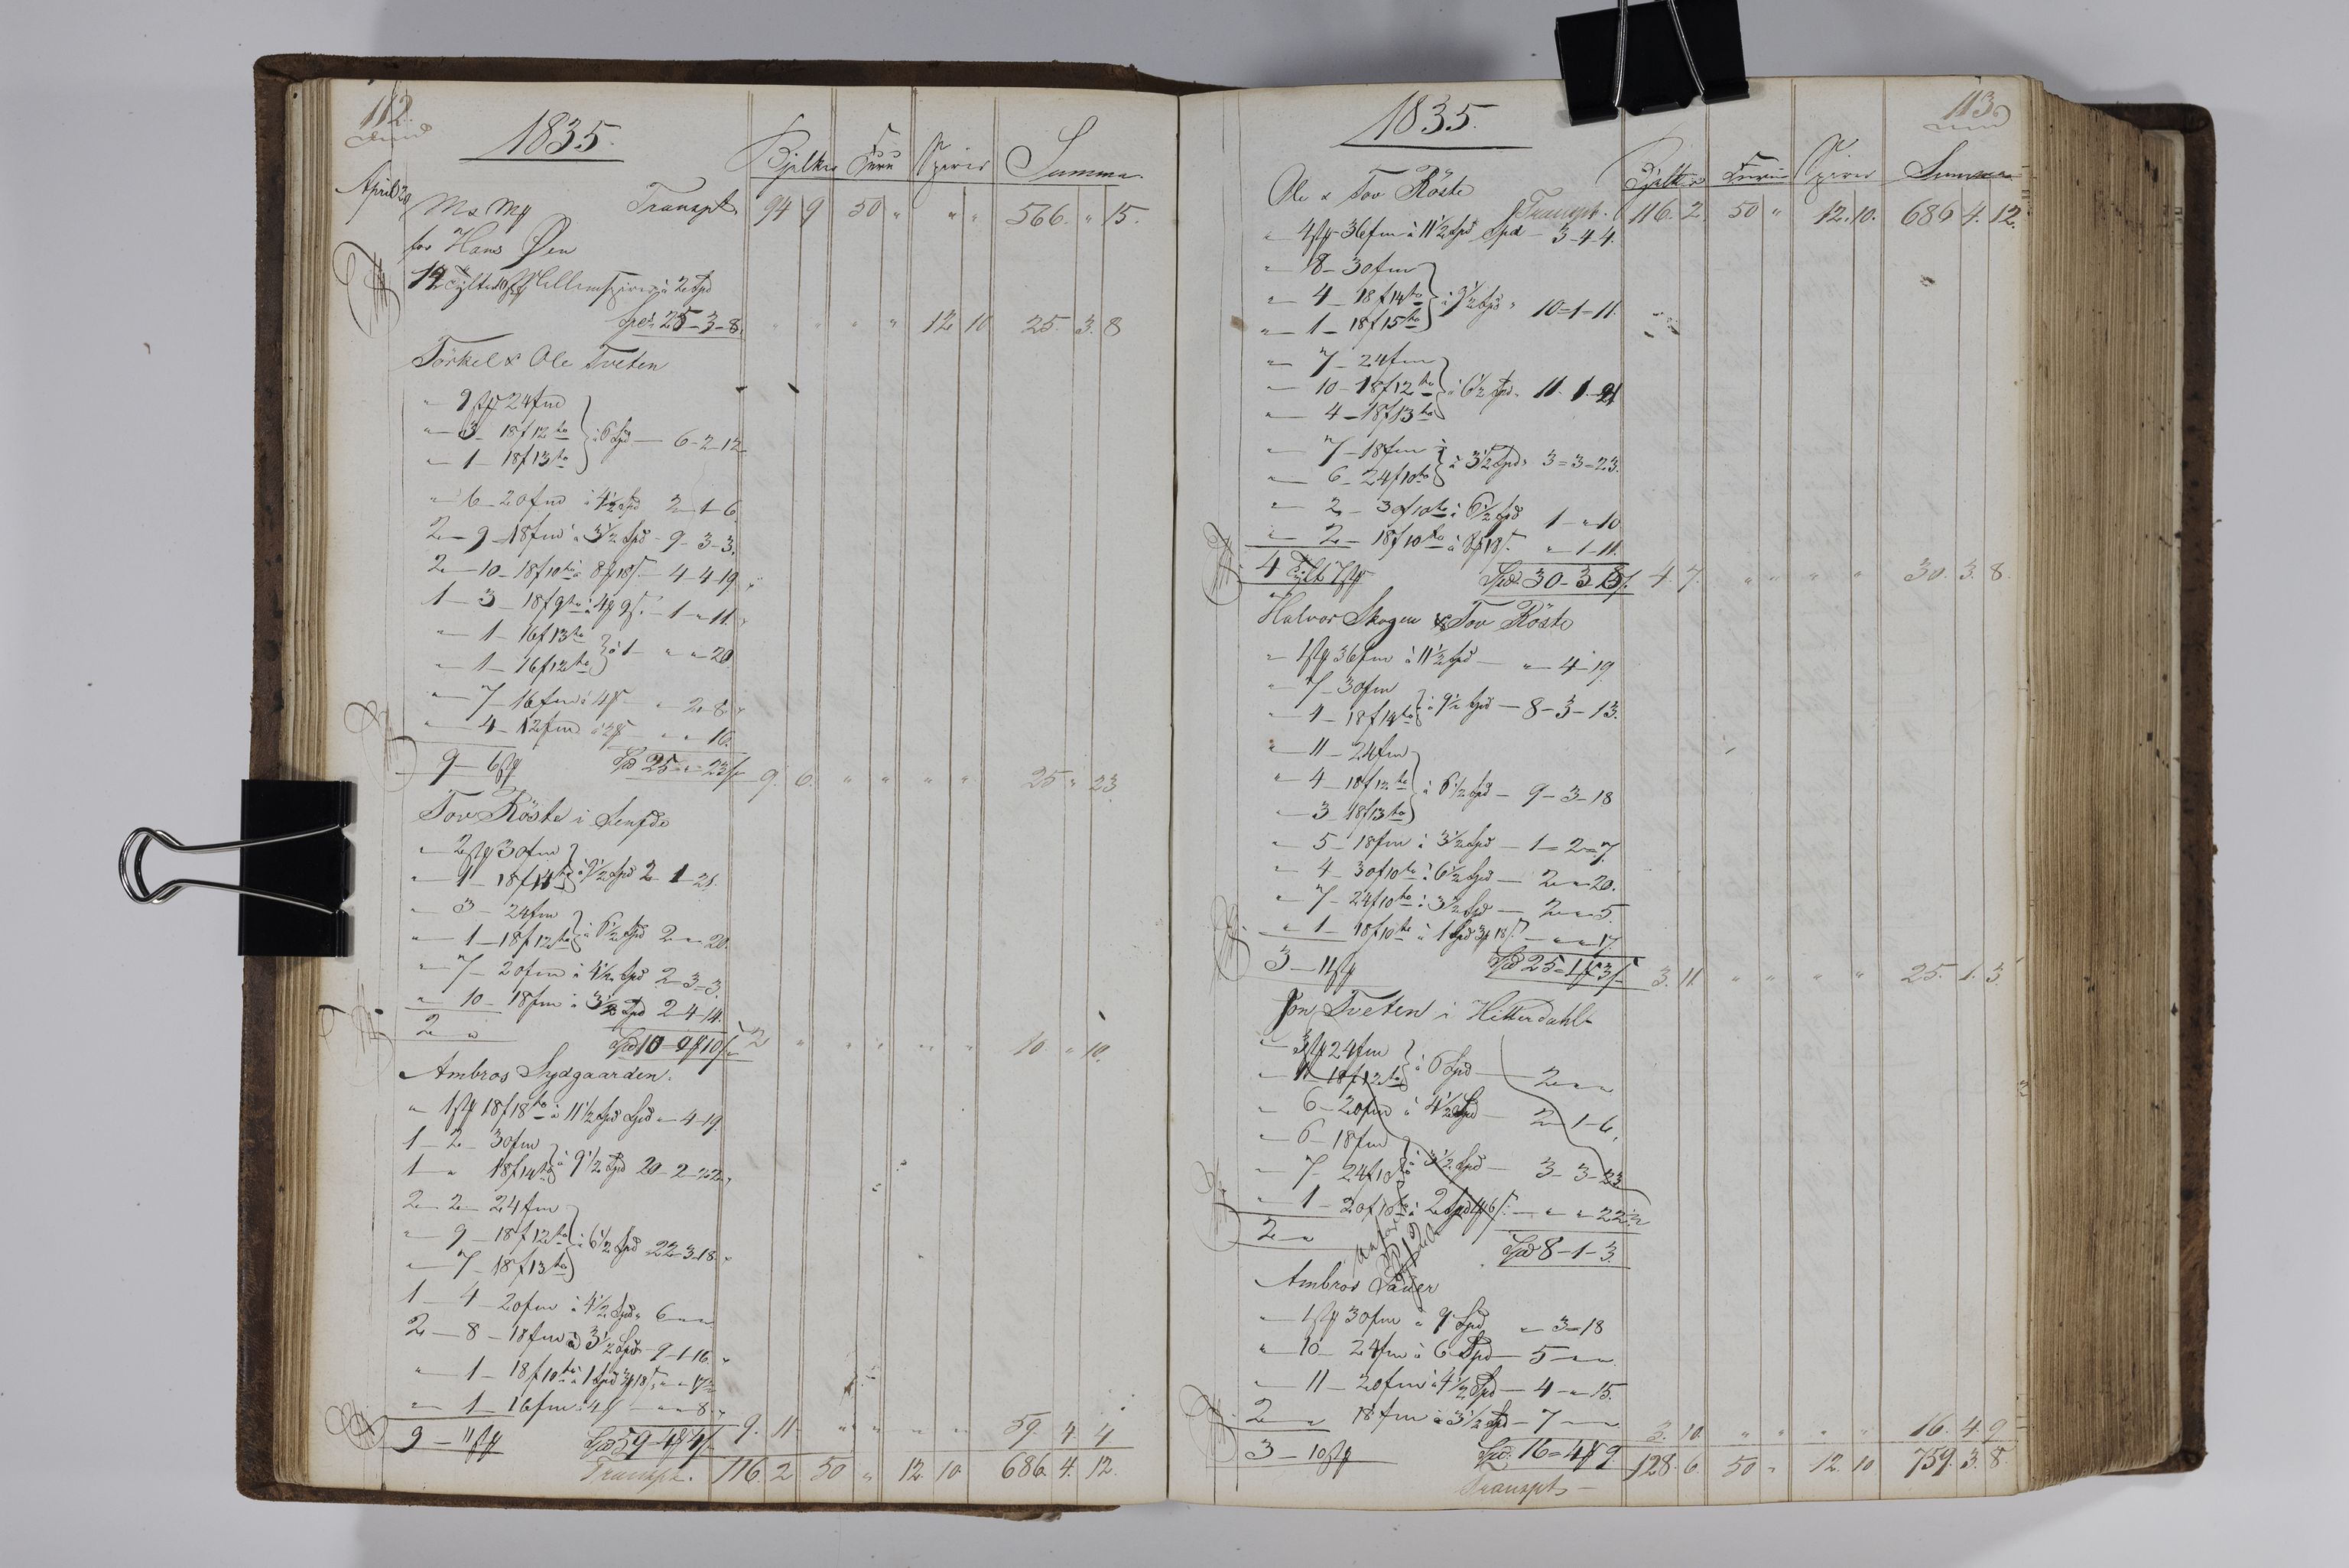 112.
1835.
Bjelker Furu Spirer Summa.
April 29
Transpt. 94 9 50 " " " 566. " 15.
for Hans Øen
12 Tylter à 2 Spd
Spd 25-3-8. " " " " 12 10 25. 3. 8
Törkel & Ole Tveten
" 9 st 24 fm
" 3 - 18 f 12 to } à 6 Spd - 6-2-12
" 1 - 18 f 13 to
" 6 - 20 fm à 4 1/2 Spd 2-1-6.
2 - 9 - 18 fm à 3 1/2 Spd - 9-3-3.
2 - 10 - 18 f 10 to à 8 - 4-4-19
1 - 3 - 18 f 9 to - 1 - " - 11.
" 1 - 16 f 13 to
" 1 - 16 f 12 to } à 1 - " " 20
" 7 - 16 fm à 4 - " 2-8.
" 4 - 12 fm " " 16.
9 - 6 st Spd 25 - " - 23 9. 6. " " " " 25 " 23
Tov Röste i
" 2 st 30 fm
" 1 - 18 f 14 to } à 9 1/2 Spd 2-1-21.
" 3 - 24 fm
" 1 - 18 f 12 to } à 6 1/2 Spd 2 - " - 20
" 7 - 20 fm à 4 1/2 Spd 2-3-3.
" 10 - 18 fm à 3 1/2 Spd 2-4-14.
2 - " Spd 10 - " 10 2 " " " " " 10 " 10.
Ambros Sydgaarden.
" 1 st 18 f 18 to à 11 1/2 Spd Spd " - 4-19.
1 - 2 - 30 fm
1 - " 18 f 14 to } à 9 1/2 Spd 20-2-22
2 - 2 - 24 fm
" 9 - 18 f 12 to } à 6 1/2 Spd 22-3-18.
" 7 - 18 f 13 to
1 - 4 - 20 fm à 4 1/2 Spd 6 - " - "
2 - 8 - 18 fm à 3 1/2 Spd 9-1-16.
" 1 - 18 f 10 to à 1 Spd " " 17
" 1 - 16 fm à 4 - " " 8.
9 - 11 st Spd 59 - 4 4 9. 11 " " " " 59. 4 4
Transpt. 116. 2 50 " 12 10 686. 4. 12.
113.
1835.
Bjelker Furu Spirer Summa
Ole & Tov Röste
Transpt. 116. 2. 50 " 12. 10. 686 4. 12.
" 4 st 36 fm à 11 1/2 Spd Spd - 3-4-4.
" 8 - 30 fm
" 4 - 18 f 14 to } à 9 1/2 Spd " 10-1-11.
" 1 - 18 f 15 to
" 7 - 24 fm
" 10 - 18 f 12 to } à 6 1/2 Spd. 11. 1-21
" 4 - 18 f 13 to
" 7 - 18 fm
" 6 - 24 f 10 to } à 3 1/2 Spd 3-3-23.
" 2 - 30 f 10 to à 6 1/2 Spd 1 - " 10
" 2 - 18 f 10 to " 1-11.
4 Tylt 7 st Spd 30-3-8 4. 7. " " " " 30. 3. 8.
Halvor Skogen & Tov Röste
" 1 st 36 fm à 11 1/2 Spd - " 4-19
" 7 - 30 fm
" 4 - 18 f 14 to } à 9 1/2 Spd - 8-3-13.
" 11 - 24 fm
" 4 - 18 f 12 to } à 6 1/2 Spd - 9-3-18
" 3 - 18 f 13 to
" 5 - 18 fm à 3 1/2 Spd - 1-2-7.
" 4 - 30 f 10 to à 6 1/2 Spd - 2 - " 20.
" 7 - 24 f 10 to à 3 1/2 Spd - 2 - " 5.
" 1 - 18 f 10 to à 1 Spd - " " 17.
3 - 11 st Spd 25 - 1 3 3. 11. " " " " 25. 1. 3
Jon Tveten i Hitterdahl
" 3 st 24 fm
18 f 12 to } à 6 Spd 2 - " "
" 6 - 20 fm à 4 1/2 Spd - 2-1-6.
" 6 - 18 fm
" 7 - 24 f 10 to } à 3 1/2 Spd - 3-3-23
" 1 - 20 f 10 to à 2 Spd - " " 22
2 - " Spd 8-1-3.
Ambros
" 1 st 30 fm à 9 Spd " 3-18
" 10 - 24 fm à 6 Spd - 5 - " "
" 11 - 20 fm à 4 1/2 Spd - 4 - " 15.
2 - " 18 fm à 3 1/2 Spd - 7 - " "
3 - 10 st Spd 16 - 4 9 3. 10. " " " " 16. 4. 9
128. 6. 50 " 12. 10 759. 3. 8.
Transpt